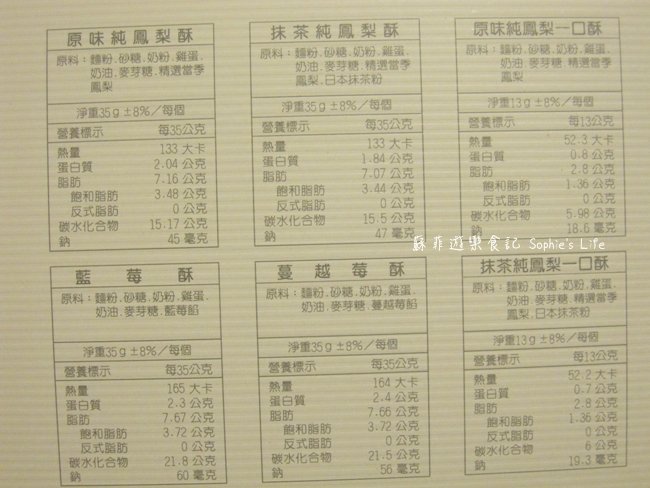 原味純鳳梨酥
原料：麵粉.砂糖.奶粉.雞蛋.
奶油.麥芽糖.精選當季
鳳梨
淨重35g±8%／每個
營養標示 每35公克
熱量 133 大卡
蛋白質 2.04 公克
脂肪 7.16 公克
飽和脂肪 3.48 公克
反式脂肪 0 公克
碳水化合物 15.17 公克
鈉 45 毫克
抹茶純鳳梨酥
原料：麵粉.砂糖.奶粉.雞蛋.
奶油.麥芽糖.精選當季
鳳梨.日本抹茶粉
淨重35g±8%／每個
營養標示 每35公克
熱量 133 大卡
蛋白質 1.84 公克
脂肪 7.07 公克
飽和脂肪 3.44 公克
反式脂肪 0 公克
碳水化合物 15.5 公克
鈉 47 毫克
原味純鳳梨一口酥
原料：麵粉.砂糖.奶粉.雞蛋.
奶油.麥芽糖.精選當季
鳳梨
淨重13g±8%／每個
營養標示 每13公克
熱量 52.3 大卡
蛋白質 0.8 公克
脂肪 2.8 公克
飽和脂肪 1.36 公克
反式脂肪 0 公克
碳水化合物 5.98 公克
鈉 18.6 毫克
蘇菲遊樂食記 Sophie's Life
藍莓酥
原料：麵粉.砂糖.奶粉.雞蛋.
奶油.麥芽糖.藍莓餡
淨重35g±8%／每個
營養標示 每35公克
熱量 165 大卡
蛋白質 2.3 公克
脂肪 7.67 公克
飽和脂肪 3.72 公克
反式脂肪 0 公克
碳水化合物 21.8 公克
鈉 60 毫克
蔓越莓酥
原料：麵粉.砂糖.奶粉.雞蛋.
奶油.麥芽糖.蔓越莓餡
淨重35g±8%／每個
營養標示 每35公克
熱量 164 大卡
蛋白質 2.4 公克
脂肪 7.66 公克
飽和脂肪 3.72 公克
反式脂肪 0 公克
碳水化合物 21.5 公克
鈉 56 毫克
抹茶純鳳梨一口酥
原料：麵粉.砂糖.奶粉.雞蛋.
奶油.麥芽糖.精選當季
鳳梨.日本抹茶粉
淨重13g±8%／每個
營養標示 每13公克
熱量 52.2 大卡
蛋白質 0.7 公克
脂肪 2.8 公克
飽和脂肪 1.36 公克
反式脂肪 0 公克
碳水化合物 6 公克
鈉 19.3 毫克